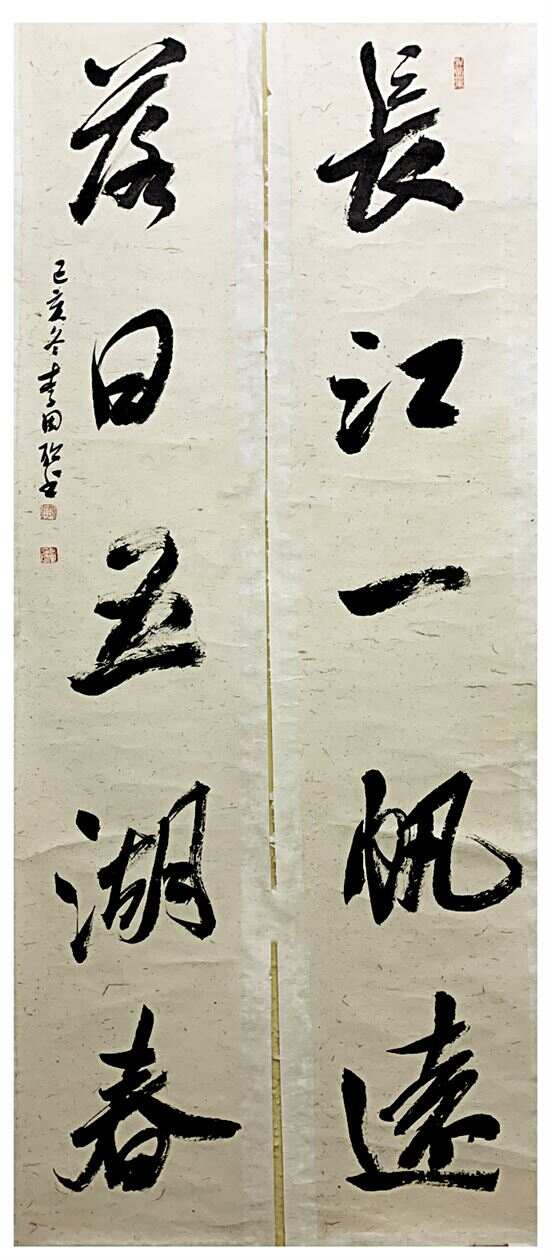 長江一帆遠
落日五湖春
己亥冬李田